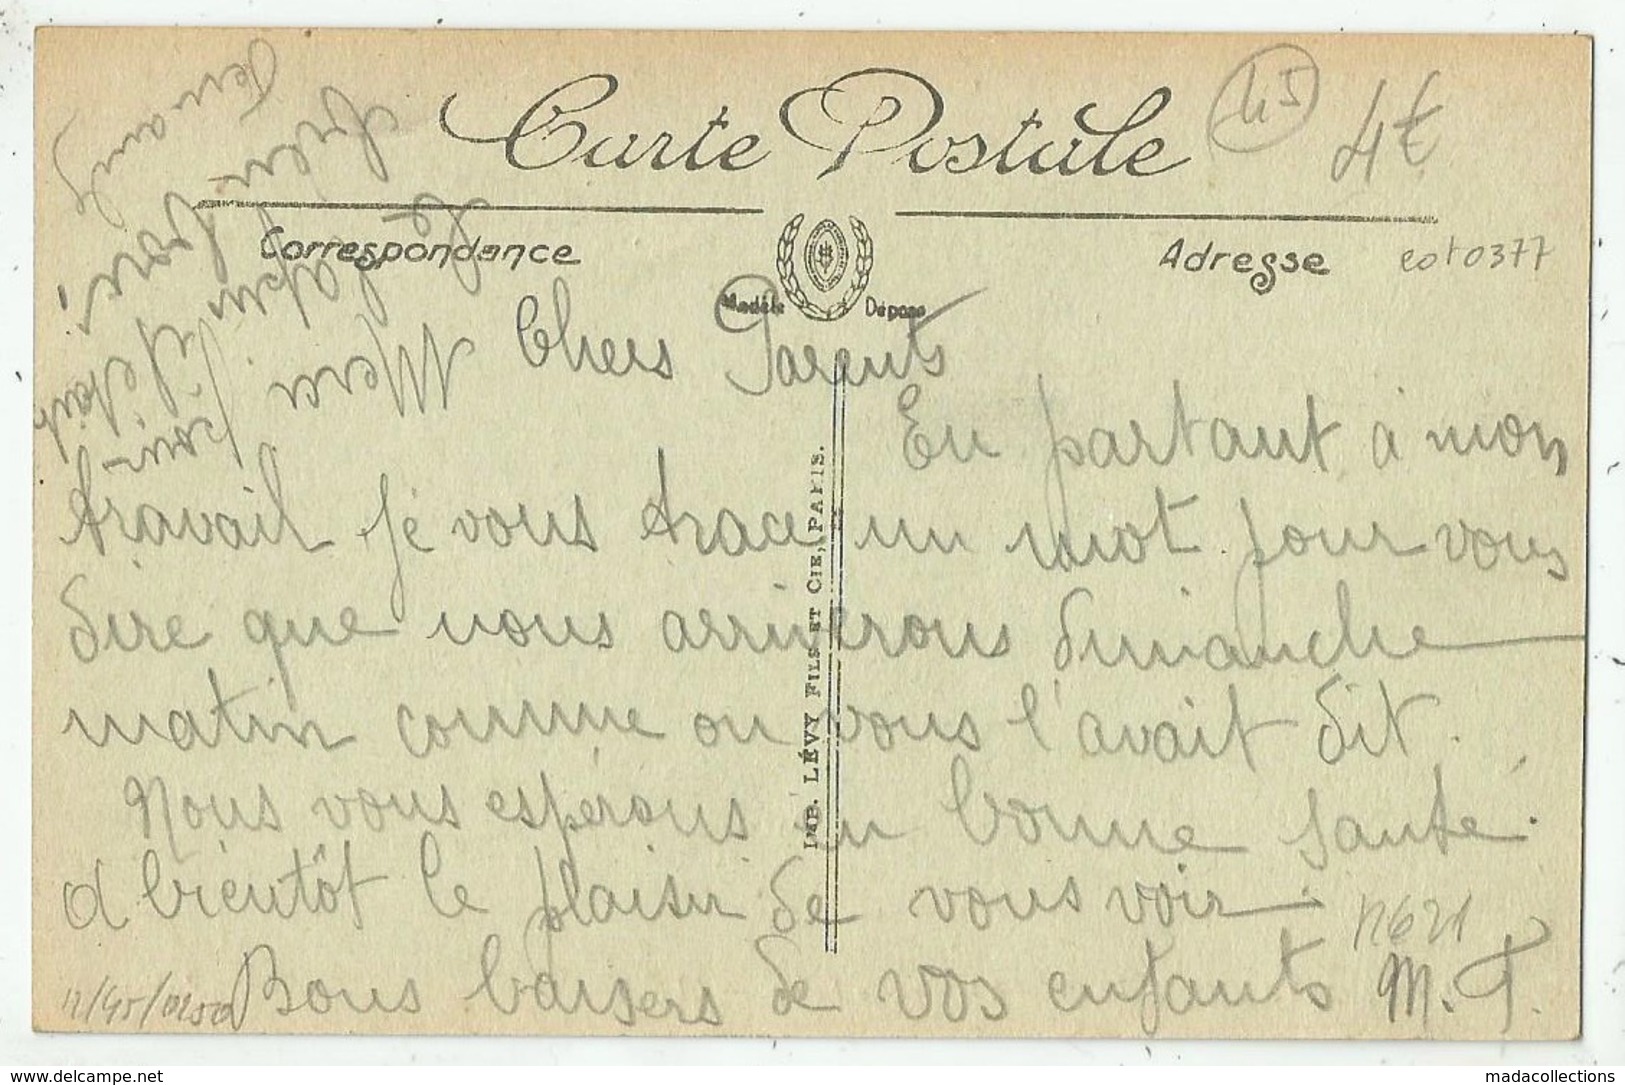 Carte Postale
45
4€
Correspondance
Adresse
cot0377
Modèle Déposé
Merci
Le lapin
était
bon
Chers Parents
En partant à mon
travail je vous trace un mot pour vous
dire que nous arriverons dimanche
matin comme on vous l'avait dit.
Nous vous espérons en bonne santé.
A bientôt le plaisir de vous voir
Bons baisers de vos enfants M. T.
n621
IMP. LÉVY FILS ET CIE, PARIS.
www.delcampe.net
madacollections